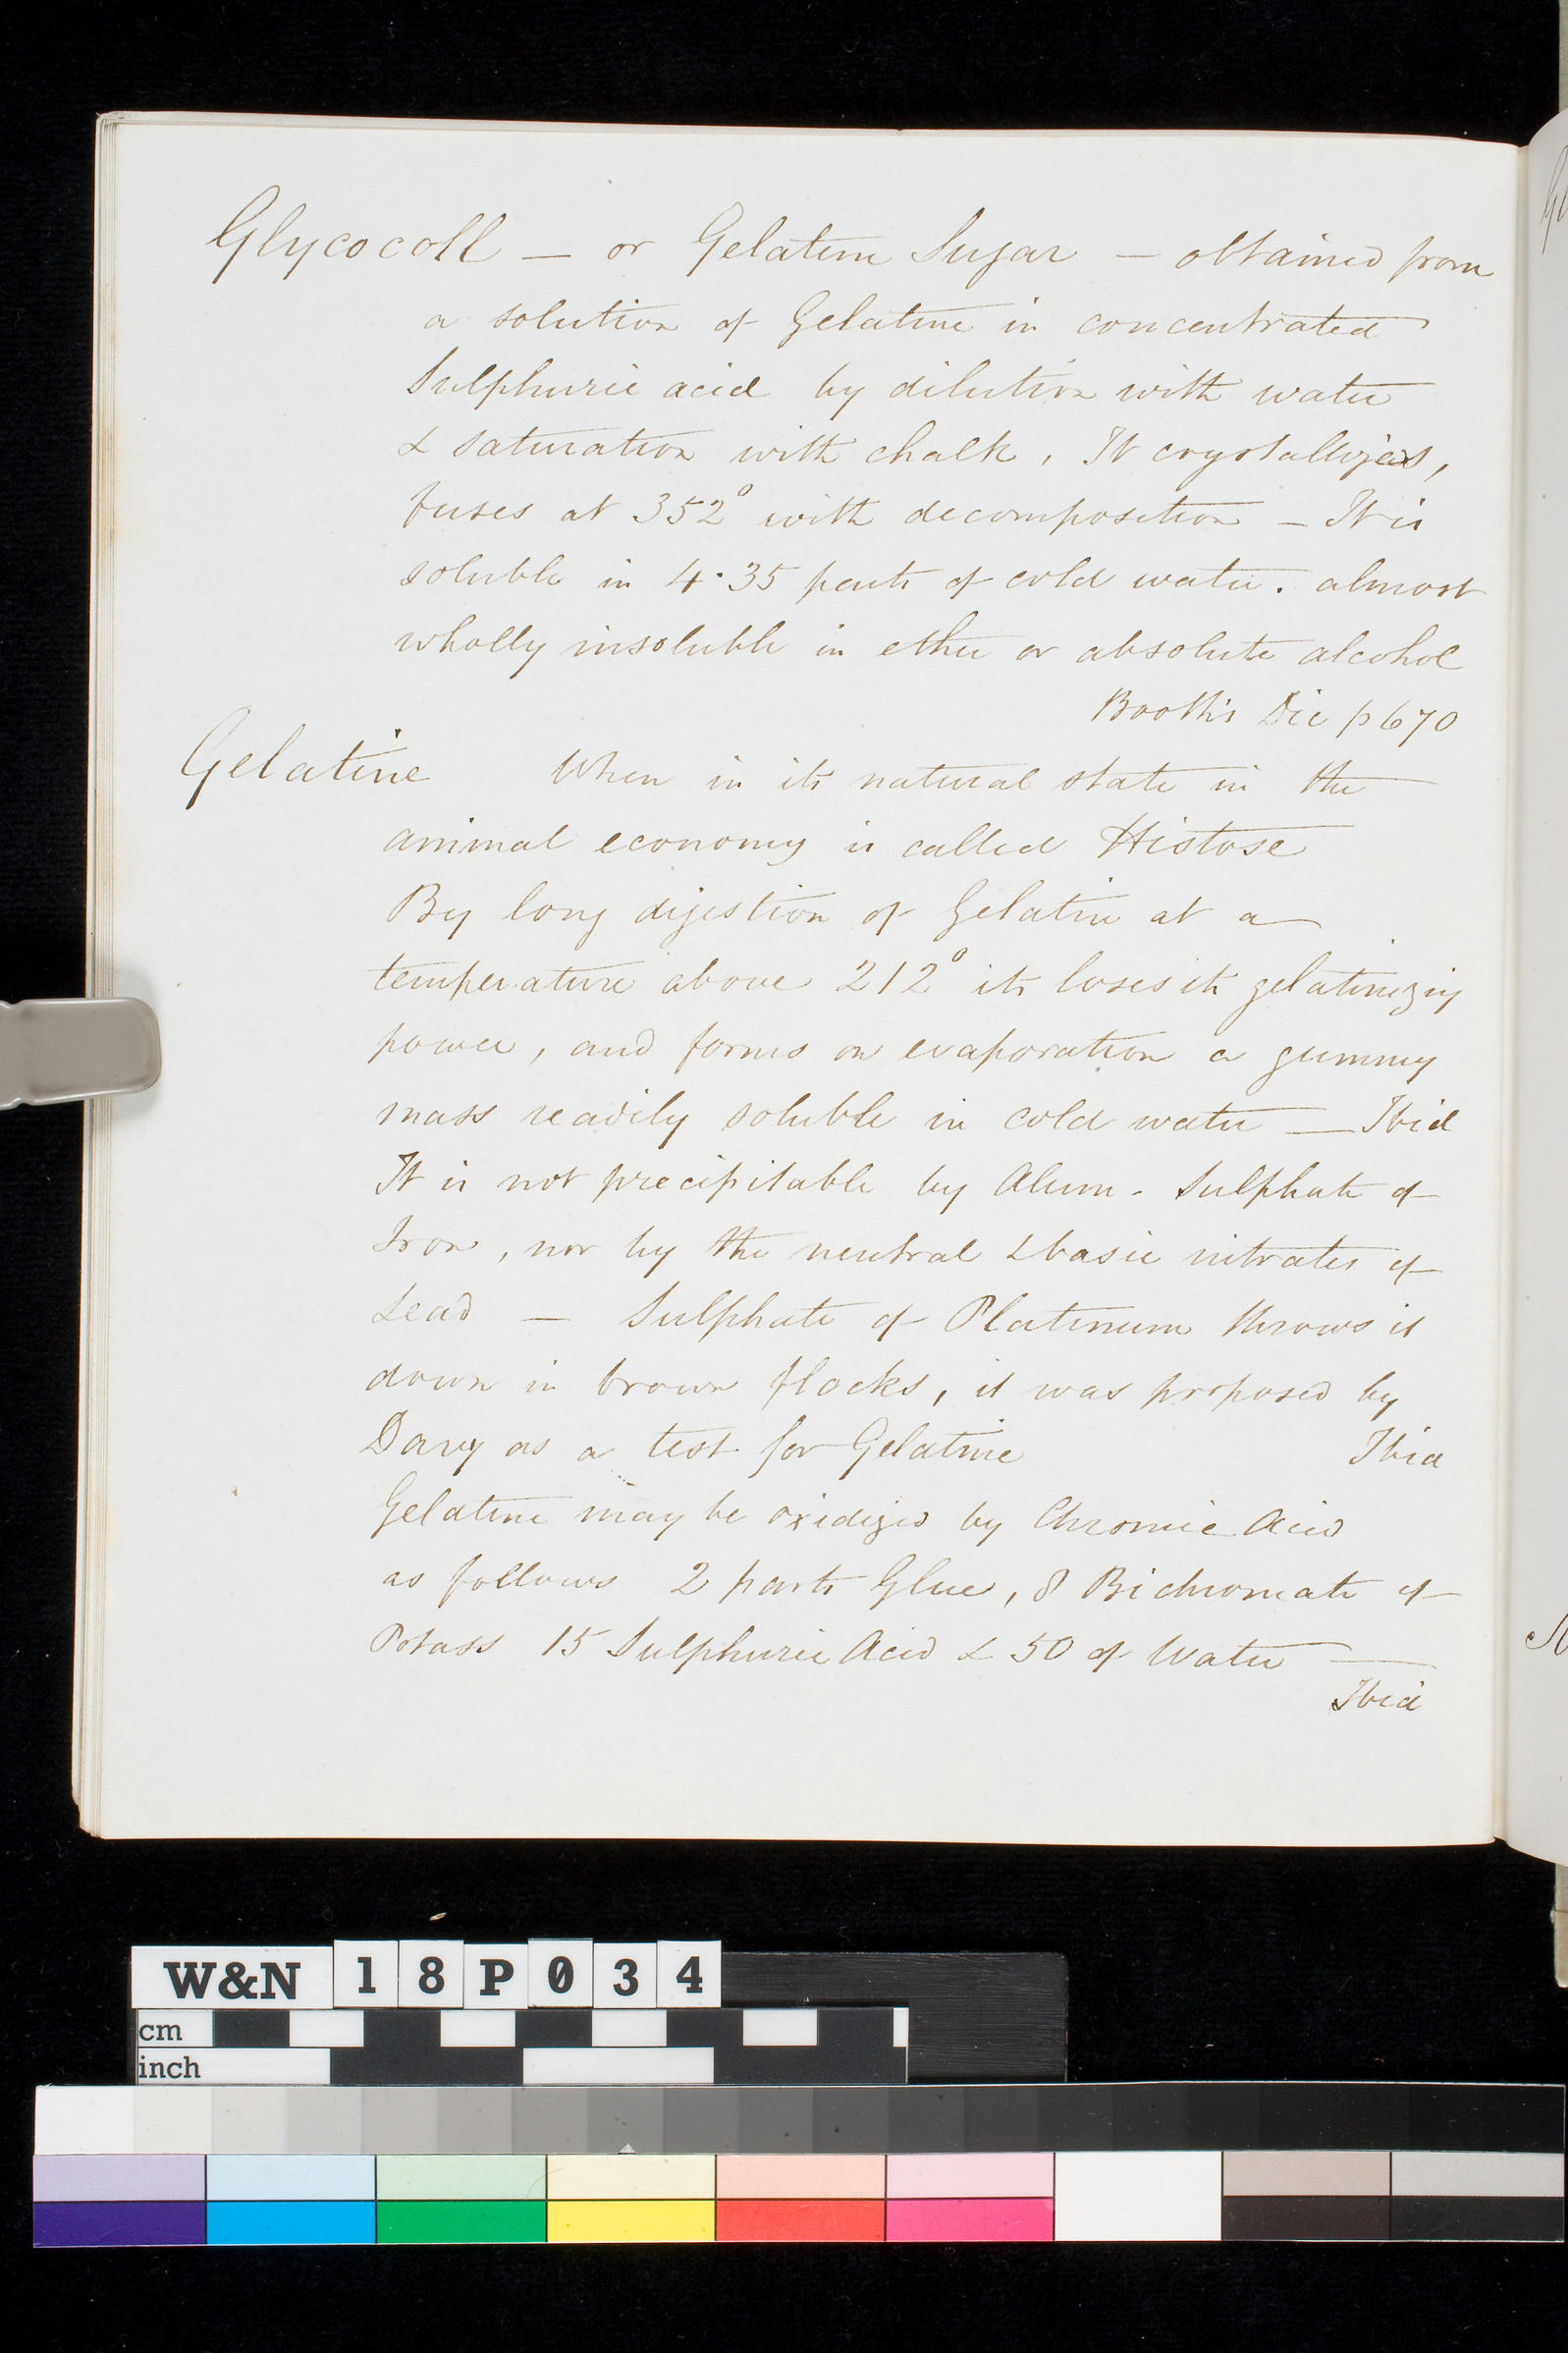 Glycocoll — or Gelatine Sugar — obtained from
a solution of Gelatine in concentrated
Sulphuric acid by dilution with water
& saturation with chalk, It crystallizes,
fuses at 352° with decomposition — It is
soluble in 4·35 parts of cold water. almost
wholly insoluble in ether or absolute alcohol
Booth's Dic p 670
Gelatine When in its natural state in the
animal economy is called Histose
By long digestion of Gelatine at a
temperature above 212° its loses its gelatinizing
power, and forms on evaporation a gummy
mass readily soluble in cold water — Ibid
It is not precipitable by Alum - Sulphate of
Iron, nor by the neutral & basic nitrates of
Lead — Sulphate of Platinum throws it
down in brown flocks, it was proposed by
Davy as a test for Gelatine Ibid
Gelatine may be oxidized by Chromic Acid
as follows 2 parts Glue, 8 Bichromate of
Potass 15 Sulphuric Acid & 50 of Water —
Ibid
W&N 18P034
cm
inch